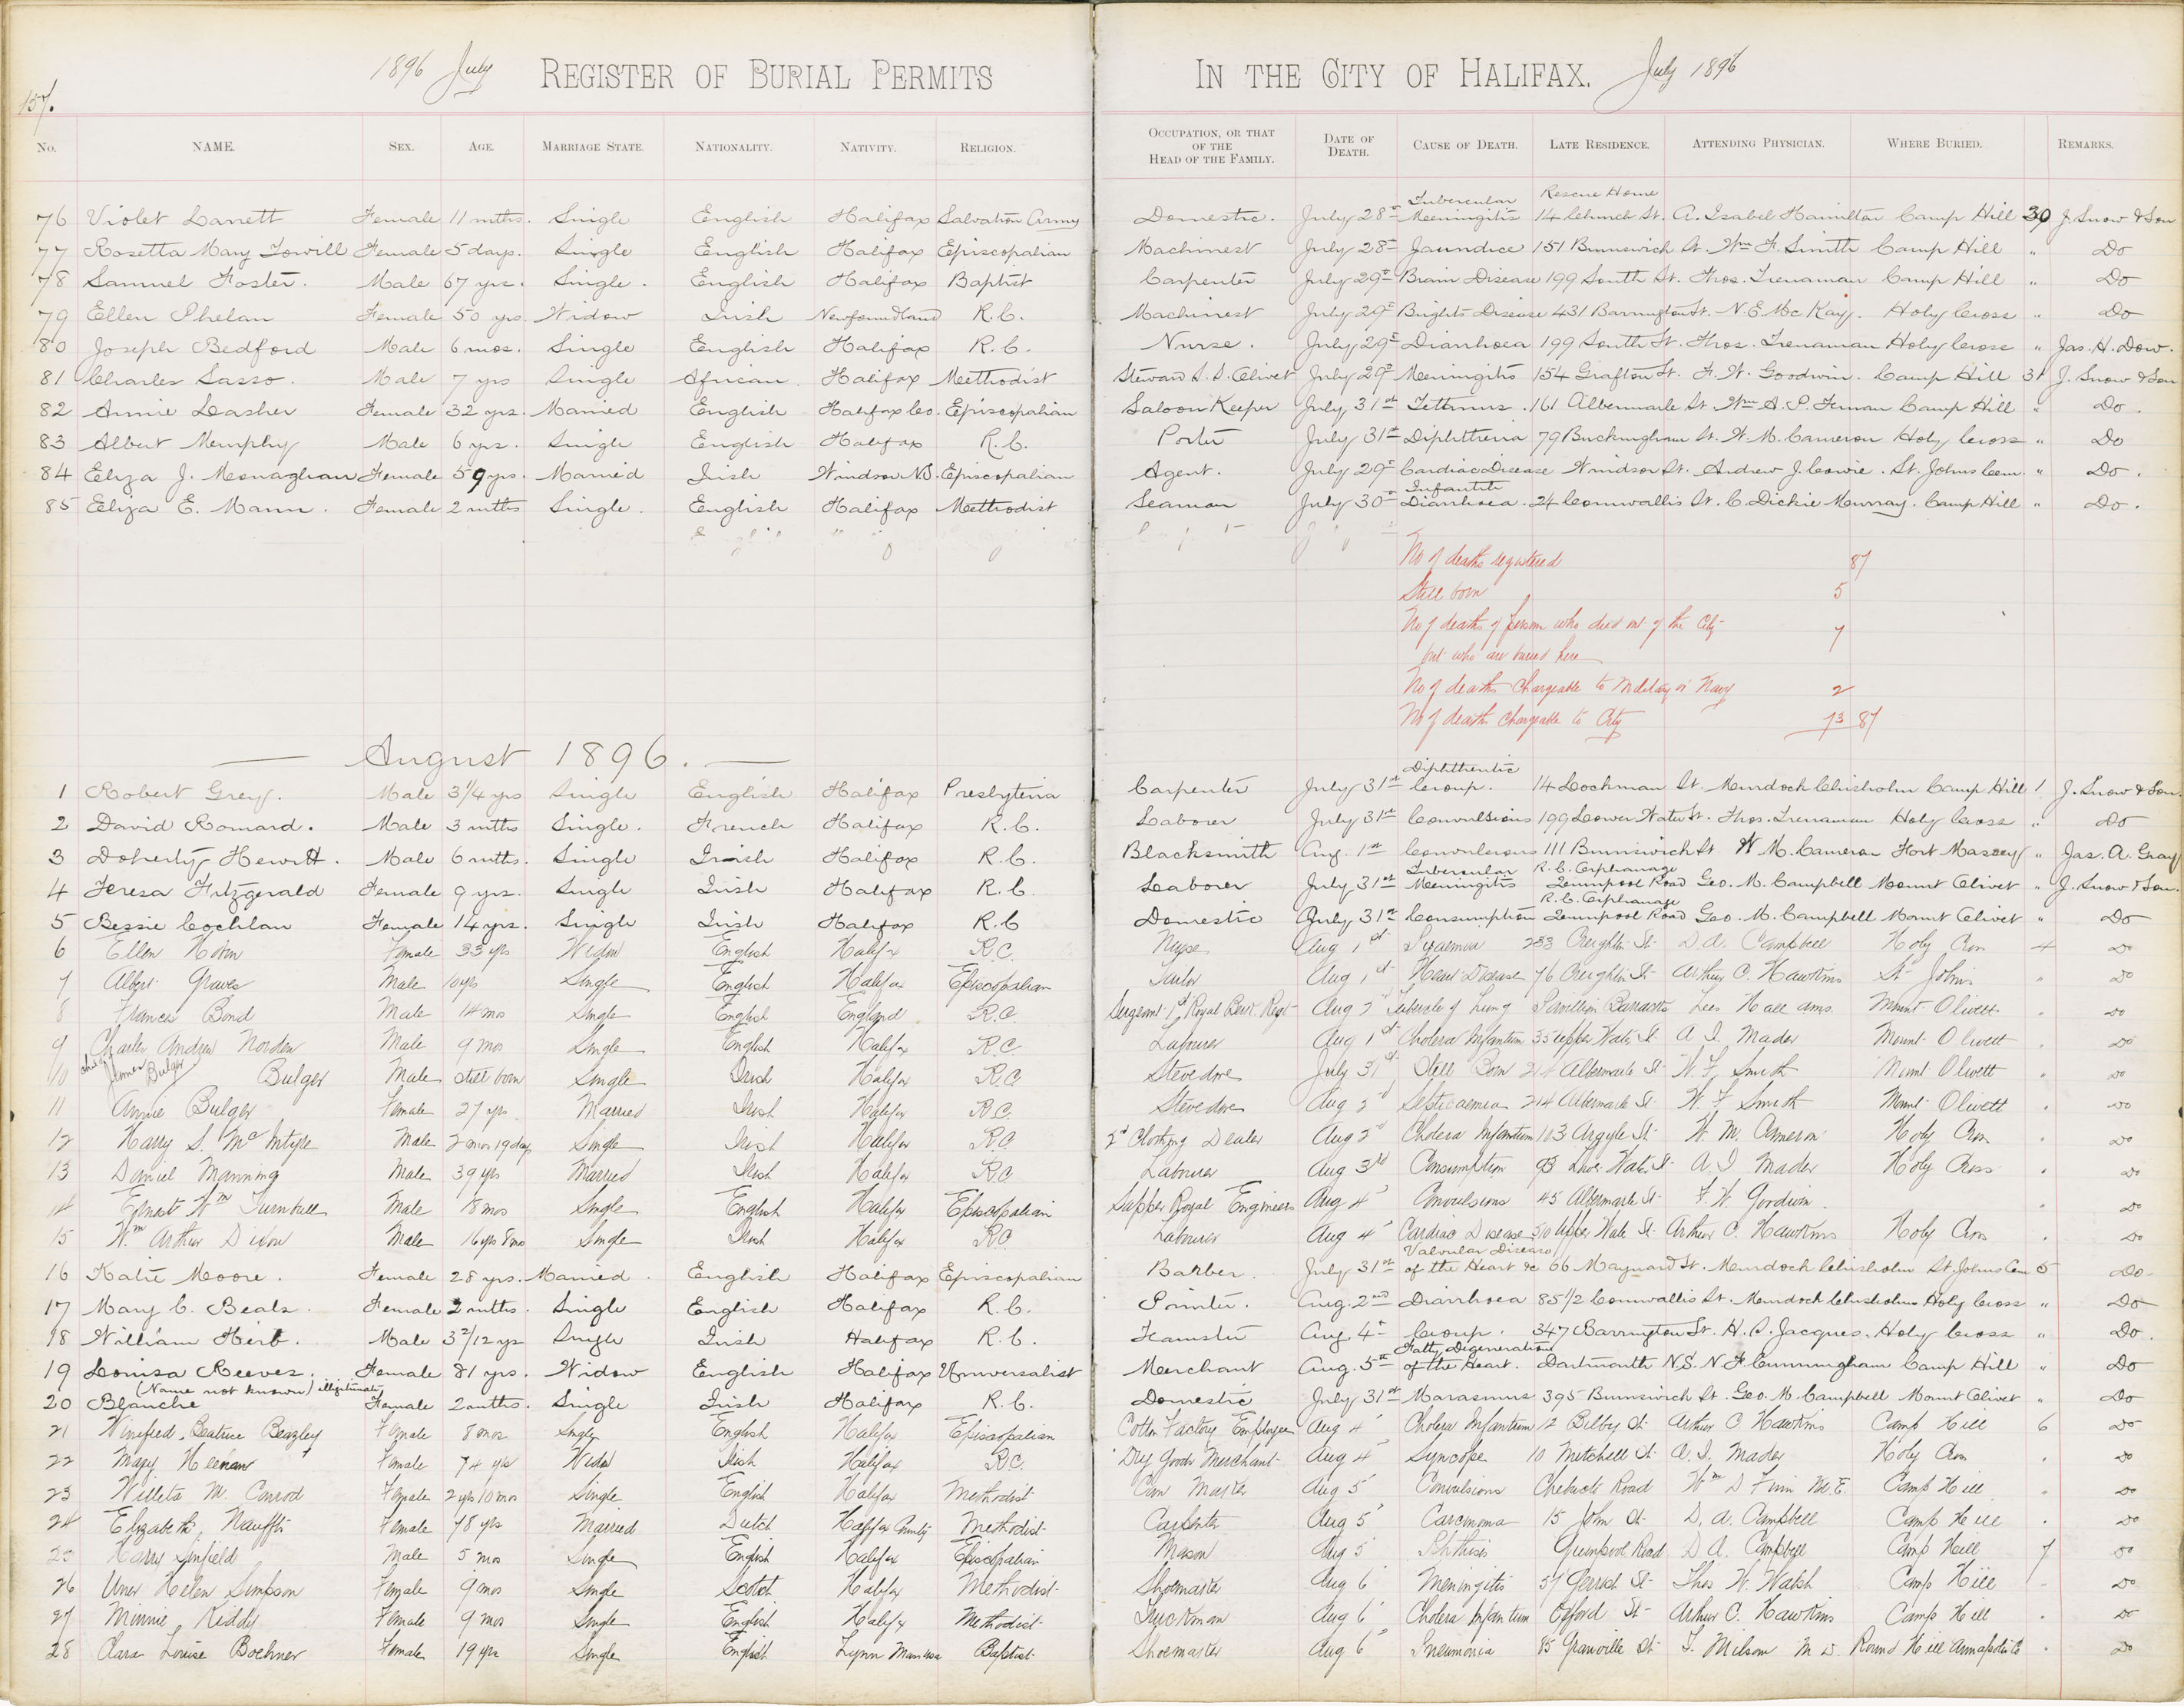 157.
1896 July REGISTER OF BURIAL PERMITS IN THE CITY OF HALIFAX. July 1896
No. NAME. SEX. AGE. MARRIAGE STATE. NATIONALITY. NATIVITY. RELIGION. OCCUPATION, OR THAT OF THE HEAD OF THE FAMILY. DATE OF DEATH. CAUSE OF DEATH. LATE RESIDENCE. ATTENDING PHYSICIAN. WHERE BURIED. REMARKS.
76 Violet Female 11 mths. Single English Halifax Salvation Army Domestic. July 28th Tubercular Meeningitis Rescue Home 14 Church St. A. Isabel Hamilton Camp Hill 30 J. Snow & Son
77 Rosetta Mary Towill Female 5 days. Single English Halifax Episcopalian Machinest July 28th Jaundice 151 Brunswick St. Wm F. Smith Camp Hill " Do
78 Samuel Foster. Male 67 yrs. Single. English Halifax Baptist Carpenter July 29th Brain Disease 199 South St. Thos. Trenaman Camp Hill " Do
79 Ellen Phelan Female 50 yrs Widow Irish Newfoundland R.C. Machinest July 29th Brights Disease 431 Barrington St. N.E. McKay. Holy Cross " Do
80 Joseph Bedford Male 6 mos. Single English Halifax R.C. Nurse. July 29th Diarrhoea 199 South St. Thos. Trenaman Holy Cross " Jas. H. Dow.
81 Charles Sasso. Male 7 yrs Single African. Halifax Meethodist Steward S.S. Olivet July 29th Meeningitis 154 Grafton St. F. W. Goodwin. Camp Hill 31 J. Snow & Son
82 Annie Lasher Female 32 yrs. Married English Halifax Co. Episcopalian Saloon Keeper July 31st Tettanus. 161 Albermarle St. Wm A. P. Camp Hill " Do.
83 Albert Murphy Male 6 yrs. Single English Halifax R.C. Porter July 31st Diphtheria 79 Buckingham St. W. M. Cameron Holy Cross " Do
84 Eliza J. Monaghan Female 59 yrs. Married Irish Windsor N.S. Episcopalian Agent. July 29th Cardiac Disease Windsor St. Andrew J. Cowie. St. Johns Cem. " Do.
85 Eliza E. Mann. Female 2 mths Single. English Halifax Methodist Seaman July 30th Infantile Diarrhoea. 24 Cornwallis St. C. Dickie Murray. Camp Hill " Do.
No of deaths registered 87
Still born 5
No of deaths of person who died out of the City 7
but who are buried here
No of deaths Chargeable to Military or Navy 2
No of death chargeable to City 73 87
August 1896.
1 Robert Grey. Male 3 1/4 yrs Single English Halifax Presbyteria Carpenter July 31st Diphtheritic Croup. 14 Lockman St. Murdoch Chisholm Camp Hill 1 J. Snow & Son.
2 David Romard. Male 3 mths Single. French Halifax R.C. Laborer July 31st Convulsions 199 Lower Water St. Thos. Trenaman Holy Cross " Do
3 Doherty Hewitt. Male 6 mths. Single Irish Halifax R.C. Blacksmith Aug. 1st Convulsions 111 Brunswick St W. M. Cameron Fort Massey " Jas. A. Gray
4 Teresa Fitzgerald Female 9 yrs. Single Irish Halifax R.C. Laborer July 31st Tubercular Meeningitis R.C. Orphanage Quinpool Road Geo. M. Campbell Mount Olivet " J. Snow & Son.
5 Bessie Cochlan Female 14 yrs. Single Irish Halifax R.C Domestic July 31st Consumption R.C. Orphanage Quinpool Road Geo. M. Campbell Mount Olivet " Do
6 Ellen Female 33 yrs Widow English Halifax R.C. Nurse Aug 1st 283 Creighton St D. A. Campbell Holy Cross 4 Do
7 Albert Graves Male 10 yrs Single English Halifax Episcopalian Tailor Aug 1st Heart Disease 76 Creighton St Arthur C. Hawkins St Johns " Do
8 Francis Bond Male 14 mos Single English England R.C. Sergeant 1st Royal Berk. Regt Aug 2 Tubercle of Lung Pavillion Barracks Lees Hall ams. Mount Olivett . Do
9 Charles Andrew Norden Male 9 mos Single English Halifax R.C. Labourer Aug 1st Cholera Infantum 35 Upper Water St A. I. Mader Mount Olivett . Do
10 child of James Bulger Bulger Male Still born Single Irish Halifax R.C. Stevedore July 31st Still Born 214 Albermarle St W. F. Smith Mount Olivett Do
11 Annie Bulger Female 27 yrs Married Irish Halifax R.C. Stevedore Aug 2 Septicaemia 214 Albermarle St W. F. Smith Mount Olivett . Do
12 Harry S. McIntyre Male 2 mos 19 days Single Irish Halifax R.C. 2d Clothing Dealer Aug 2 Cholera Infantum 103 Argyle St W. M. Cameron Holy Cross . Do
13 Daniel Manning Male 39 yrs Married Irish Halifax R.C. Labourer Aug 3rd Consumption 93 Lower Water St A. I. Mader Holy Cross . Do
14 Ernest Wm Turnbull Male 18 mos Single English Halifax Episcopalian Sapper Royal Engineers Aug 4 Convulsions 45 Albermarle St F. W. Goodwin . Do
15 Wm Arthur Dixon Male 16 yrs 8 mo Single Irish Halifax R.C Labourer Aug 4 Cardiac Disease 50 Upper Water St Arthur C. Hawkins Holy Cross . Do
16 Katie Moore. Female 28 yrs. Married. English Halifax Episcopalian Barber. July 31st Valvular Disease of the Heart &c 66 Maynard St. Murdoch Chisholm St Johns Cem 5 Do
17 Mary C. Beals. Female 2 mths. Single English Halifax R.C. Painter. Aug. 2nd Diarrhoea 85 1/2 Cornwallis St. Murdoch Chisholm Holy Cross " Do
18 William Hirt. Male 3 2/12 yrs Single Irish Halifax R.C. Teamster Aug. 4th Croup. 347 Barrington St. H. S. Jacques. Holy Cross " Do.
19 Louisa Reeves. Female 81 yrs. Widow English Halifax Universalist Merchant Aug. 5th Fatty Degeneration of the Heart. Dartmouth N.S. N F Cunningham Camp Hill " Do
20 Blanche (Name not known) illigitimate Female 2 mths. Single Irish Halifax R.C. Domestic July 31st Marasmus 395 Brunswick St. Geo. M. Campbell Mount Olivet " Do
21 Winefred Beatrice Beazley Female 8 mos Single English Halifax Episcopalian Cotton Factory Employee Aug 4 Cholera Infantum 12 Bilby St Arthur C Hawkins Camp Hill 6 Do
22 Mary Heenan Female 74 yrs Widow Irish Halifax R.C. Dry Goods Merchant Aug 4 Syncope 10 Mitchell St A. I. Mader Holy Cross . Do
23 Willeta M. Conrod Female 2 yrs 10 mos Single English Halifax Methodist Car Master Aug 5 Convulsions Chebucto Road Wm D Finn M.E. Camp Hill . Do
24 Elizabeth Nauffts Female 78 yrs Married Dutch Halifax County Methodist Carpenter Aug 5 Carcinoma 15 John St D. A. Campbell Camp Hill . Do
25 Harry Sinfield Male 5 mos Single English Halifax Episcopalian Mason Aug 5 Phthisis Quinpool Road D A. Campbell Camp Hill 7 Do
26 Helen Simpson Female 9 mos Single Scotch Halifax Methodist Shoemaker Aug 6 Meningitis 57 Gerrish St Thos W. Walsh Camp Hill - Do
27 Minnie Kiddy Female 9 mos Single English Halifax Methodist Truckman Aug 6 Cholera Infantum Oxford St Arthur C. Hawkins Camp Hill Do
28 Clara Louise Boehner Female 19 yrs Single English Lynn Mass Baptist Shoemaker Aug 6 Pneumonia 85 Granville St Milsom M D. Round Hill Annapolis Co . Do